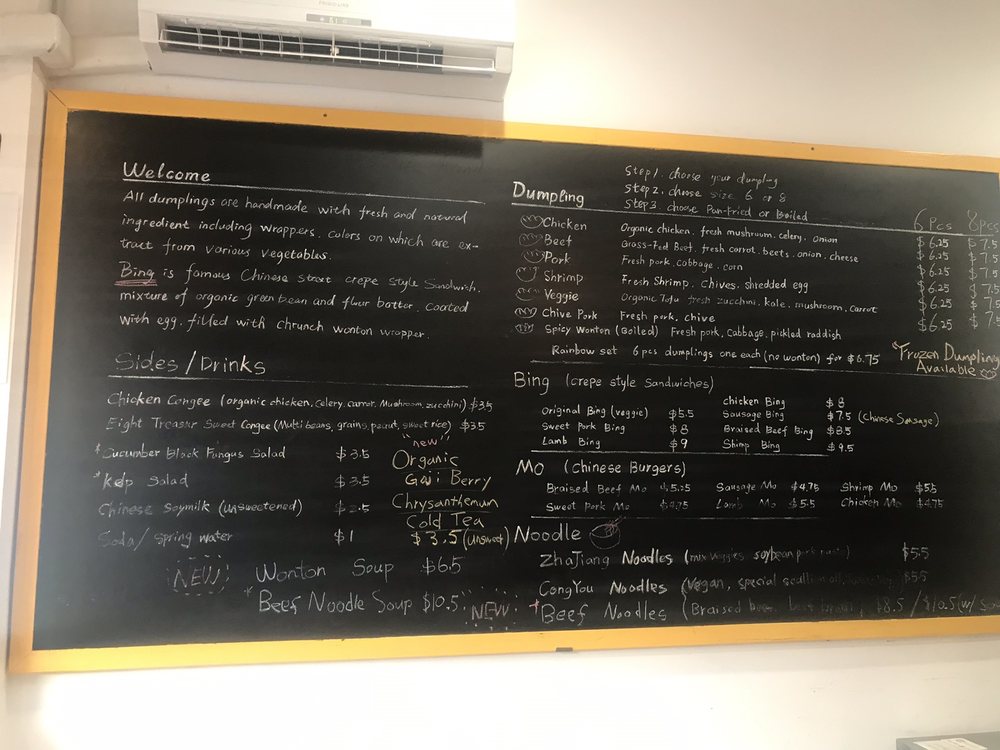 Welcome
All dumplings are handmade with fresh and natural
ingredient including wrappers. colors on which are ex-
tract from various vegetables.
Bing is famous Chinese street crepe style sandwich.
mixture of organic green bean and flour batter. coated
with egg. filled with chrunch wonton wrapper.
Sides/Drinks
Chicken Congee (organic chicken, celery, carrot, Mushroom, zucchini) $3.5
Eight Treasur Sweet Congee (Multi beans, grains, peanut, sweet rice) $3.5
*Cucumber Black Fungus Salad $3.5
*Kelp Salad $3.5
Chinese Soymilk (unsweetened) $2.5
Soda/ Spring water $1
"new"
Organic
Goji Berry
Chrysanthemum
Cold Tea
$3.5 (unsweet)
NEW Wonton Soup $6.5
*Beef Noodle Soup $10.5
Step 1. choose your dumpling
Step 2. choose size 6 or 8
Step 3. choose Pan-fried or Boiled
Dumpling 6 Pcs 8 Pcs
Chicken Organic chicken. fresh mushroom. celery. onion $6.25 $7.5
Beef Grass-Fed Beef. fresh carrot. beets. onion. cheese $6.25 $7.5
Pork Fresh pork. cabbage. corn $6.25 $7.5
Shrimp Fresh Shrimp. Chives. shredded egg $6.25 $7.5
Veggie Organic Tofu fresh zucchini. kale. mushroom. carrot $6.25 $7.5
Chive Pork Fresh pork, chive $6.25 $7.5
Spicy Wonton (Boiled) Fresh pork, Cabbage, pickled raddish
Rainbow set 6 pcs dumplings one each (no wonton) for $6.75
"Frozen Dumpling
Available
Bing (crepe style sandwiches)
Original Bing (veggie) $5.5
Sweet Pork Bing $8
Lamb Bing $9
Chicken Bing $8
Sausage Bing $7.5 (Chinese Sausage)
Braised Beef Bing $8.5
Shimp Bing $9.5
Mo (Chinese Burgers)
Braised Beef Mo $5.25 Sausage Mo $4.75 Shrimp Mo $5.5
Sweet Pork Mo $4.75 Lamb Mo $5.5 Chicken Mo $4.75
Noodle
ZhaJiang Noodles (mix veggies, soybean pork $5.5
CongYou Noodles (Vegan, special scallion oil, $5.5
NEW *Beef Noodles (Braised beef, $8.5 / $10.5 (w/